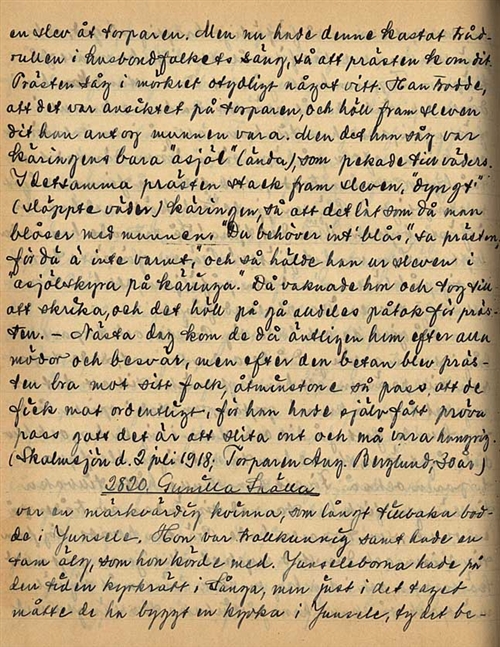 en slev åt torparen. Men nu hade denne kastat tråd-
rullen i husbondfolkets säng, så att prästen kom dit.
Prästen såg i mörkret otydligt något vitt. Han trodde,
att det var ansiktet på torparen, och höll fram sleven
dit han antog munnen vara. Men det han såg var
käringens bara "asjäl" (ända), som pekade till väders.
I detsamma prästen stack fram sleven, "dyngt"
(släppte väder) käringen, så att det lät som då man
blåser med munnen. "Du behöver int' blås," sa prästen,
"för dä ä inte varmt," och så hälde han ur sleven i
"asjälskyra på käringa". Då vaknade hon och tog till
att skrika, och det höll på gå alldeles påtok för präs-
ten. — Nästa dag kom de då äntligen hem efter alla
mödor och besvär, men efter den betan blev präs-
ten bra mot sitt folk, åtminstone så pass, att de
fick mat ordentligt, för han hade själv fått pröva
pass gott det är att slita ont och må vara hungrig.
(Skalmsjön d. 2 juli 1918, Torparen Aug. Berglund, 30 år)
2820. Gunilla Snälla
var en märkvärdig kvinna, som långt tillbaka bod-
de i Junsele. Hon var trollkunnig samt hade en
tam älg, som hon körde med. Junseleborna hade på
den tiden kyrkrätt i Långa, men just i det taget
måtte de ha byggt en kyrka i Junsele, ty det be-